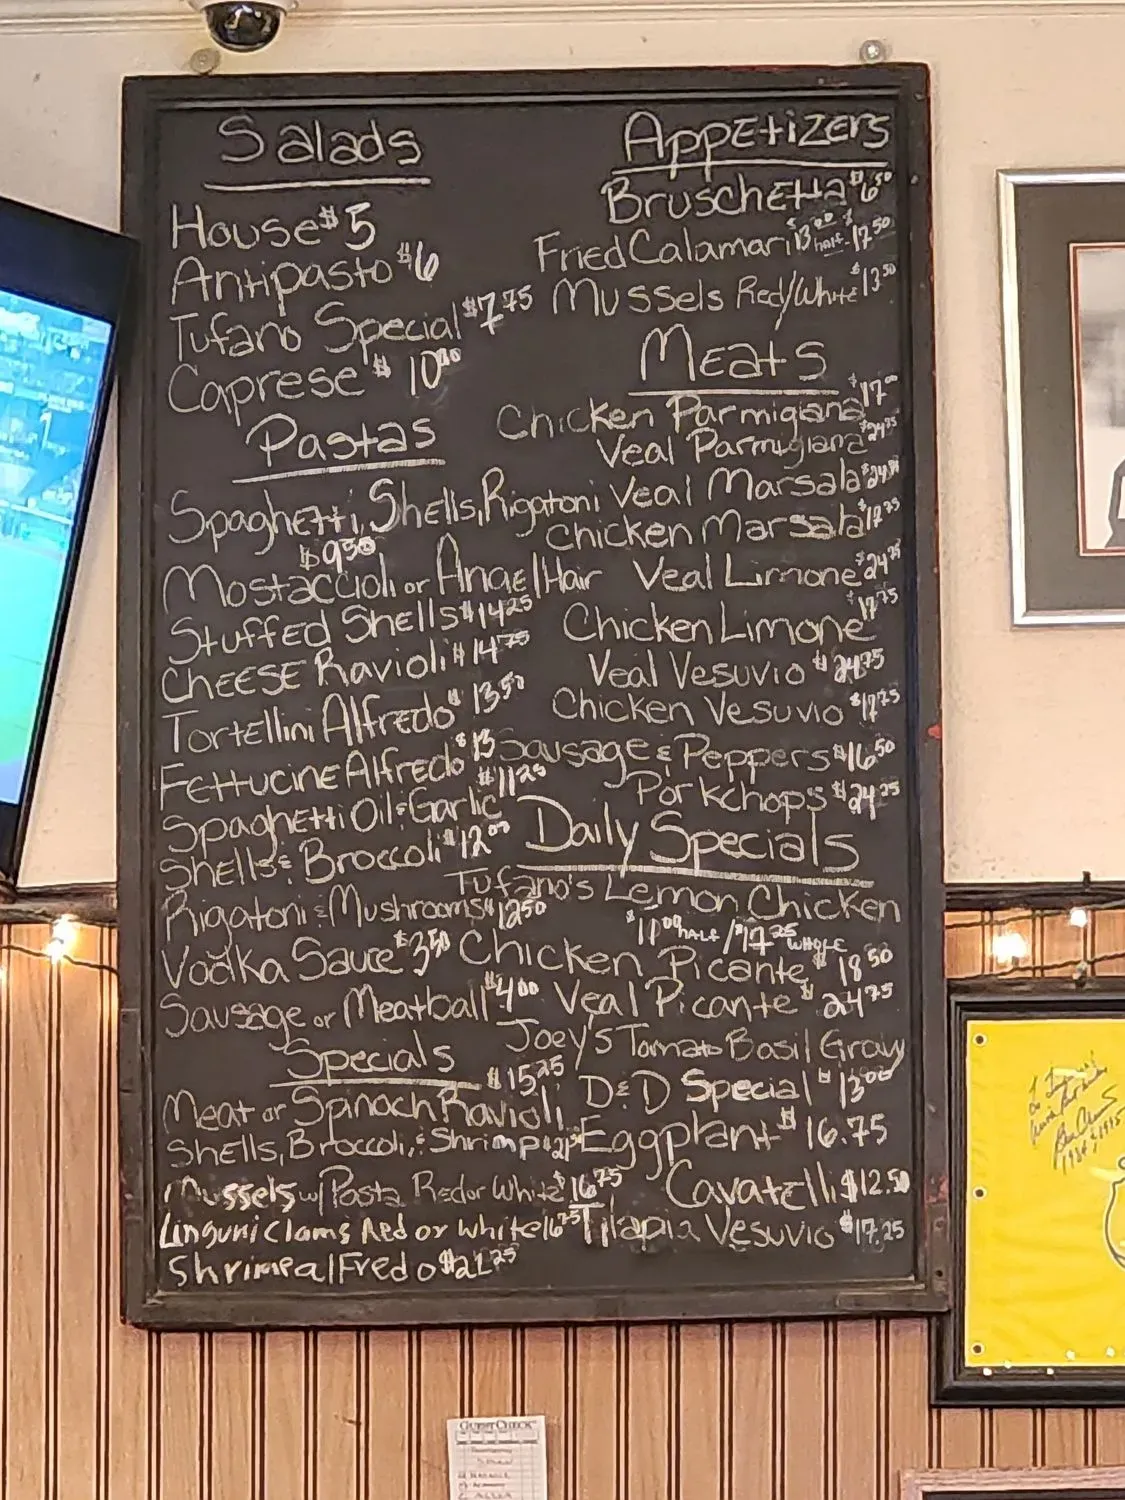 Salads
House $5
Antipasto $6
Tufano Special $7.75
Caprese $10.00
Pastas
Spaghetti, Shells, Rigatoni
$9.50
Mostaccioli or Angel Hair
Stuffed Shells $14.25
Cheese Ravioli $14.75
Tortellini Alfredo $13.50
Fettucine Alfredo $13
$11.25
Spaghetti Oil & Garlic
Shells & Broccoli $12.00
Rigatoni & Mushrooms $12.50
Vodka Sauce $3.50
Sausage or Meatball $4.00
Specials
$15.25
Meat or Spinach Ravioli
Shells, Broccoli, & Shrimp
Mussels w/ Pasta Red or White $16.75
Linguni Clams Red or White 16.75
Shrimp alFredo $21.25
Appetizers
Bruschetta $6.50
Fried Calamari $13.00 half - $17.50
Mussels Red/White $13.50
Meats
Chicken Parmigiana $17.00
Veal Parmigiana $24.75
Veal Marsala
Chicken Marsala $17.75
Veal Limone $24.75
Chicken Limone $17.75
Veal Vesuvio $24.75
Chicken Vesuvio $17.75
Sausage & Peppers $16.50
Porkchops $24.25
Daily Specials
Tufano's Lemon Chicken
$11.00 HALF / $17.25 WHOLE
Chicken Picante $18.50
Veal Picante $24.75
Joey's Tomato Basil Gravy
D&D Special $13.00
Eggplant $16.75
Cavatelli $12.50
Tilapia Vesuvio $17.25
GUEST CHECK